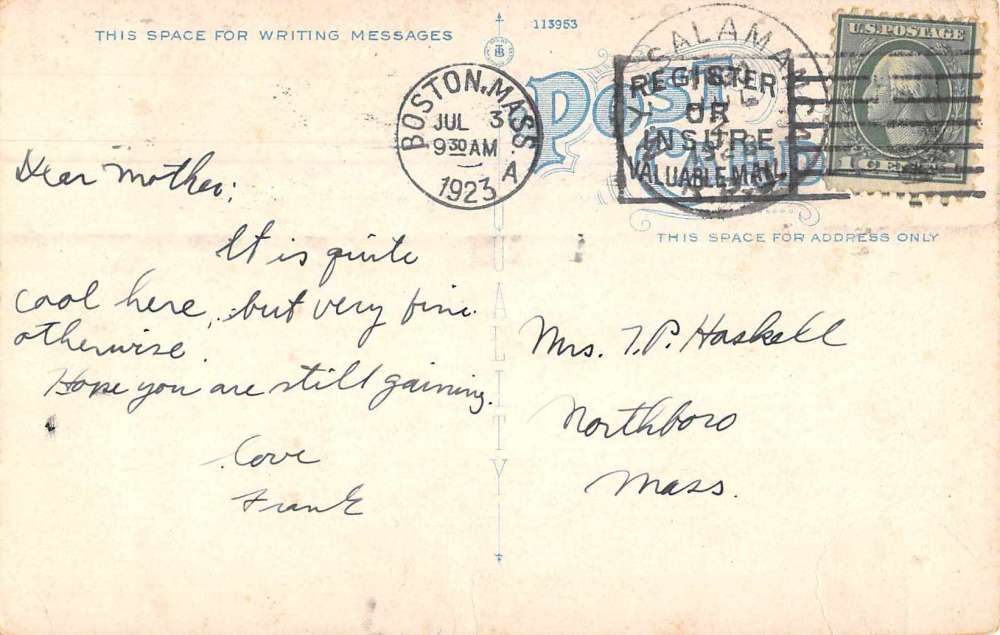 THIS SPACE FOR WRITING MESSAGES
113953
TB
POST CARD
QUALITY
THIS SPACE FOR ADDRESS ONLY
BOSTON, MASS.
JUL 3
9 30 AM
1923
A
SALAMANCA
REGISTER
OR
INSURE
VALUABLE MAIL
U.S. POSTAGE
1 CENT
Dear Mother;
It is quite
cool here, but very fine
otherwise.
Hope you are still gaining.
Love
Frank
Mrs. T. P. Haskell
Northboro
Mass.